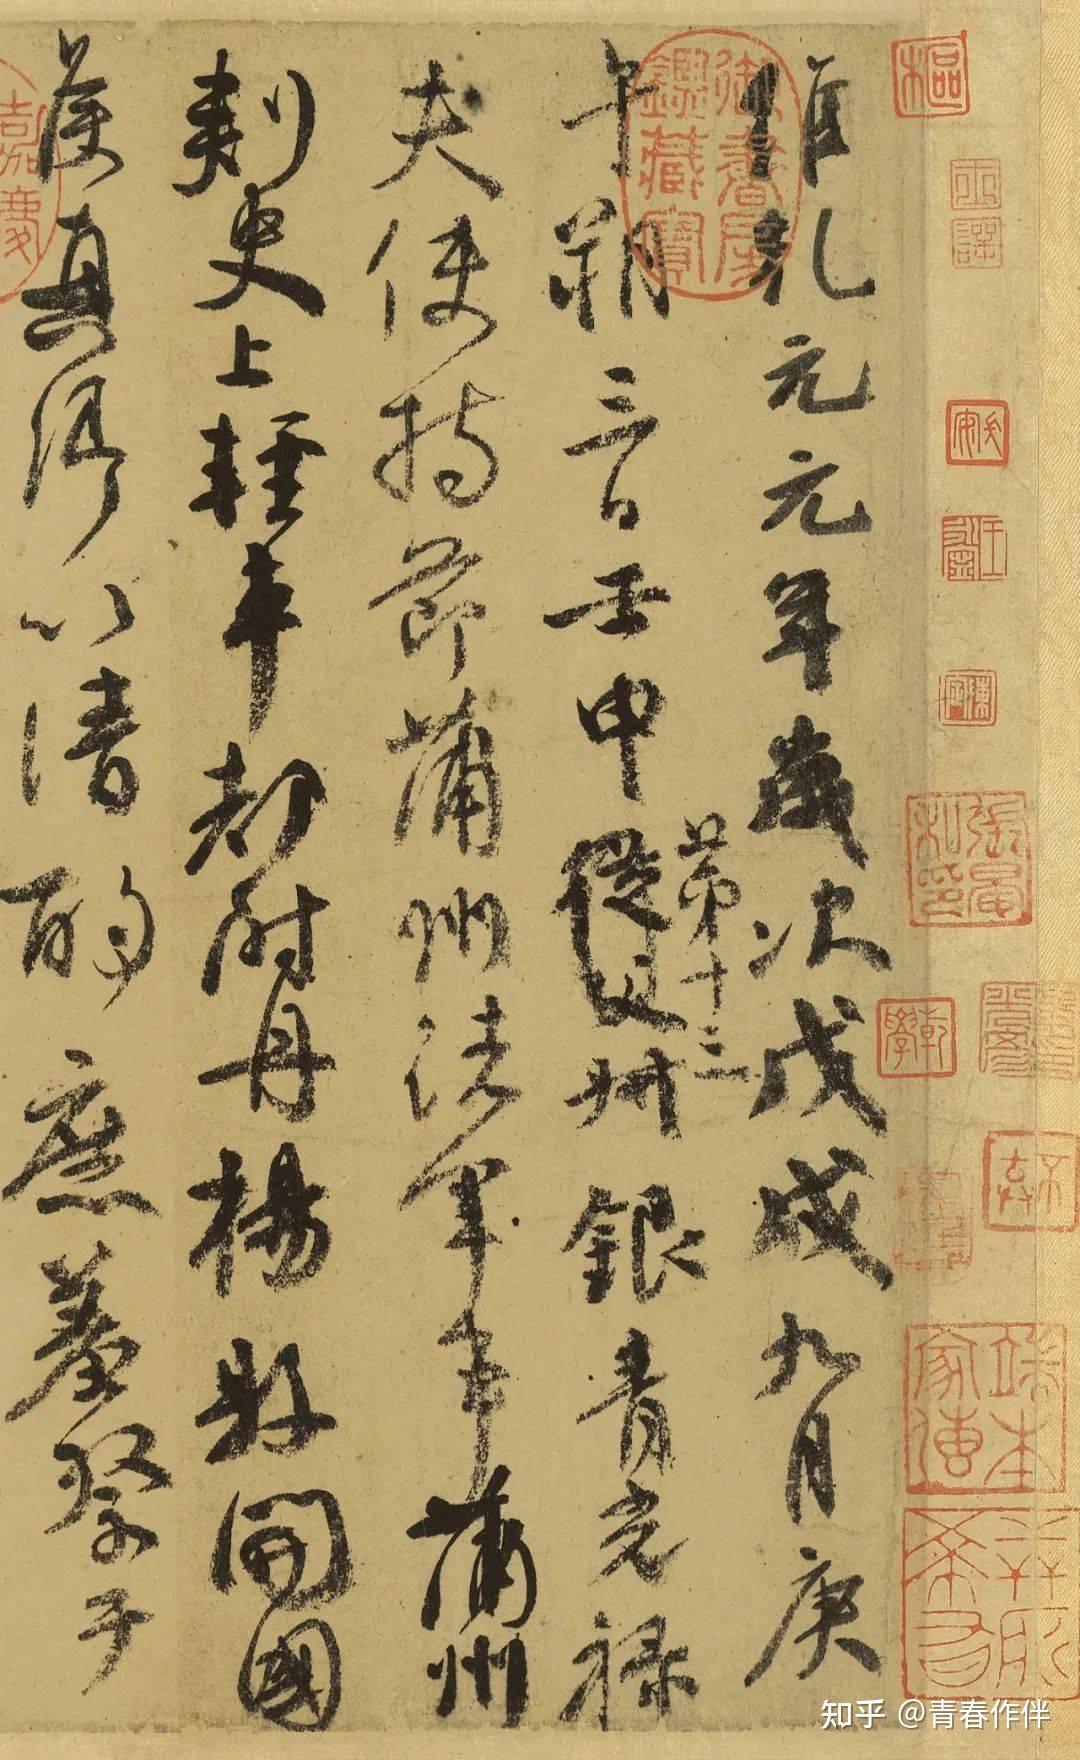 維乾元元年歲次戊戌九月庚
午朔三日壬申第十三從父叔銀青光祿
夫使持節蒲州諸軍事蒲州
刺史上輕車都尉丹楊縣開國
侯真卿以清酌庶羞祭于
御書房鑒藏寶
嘉慶
樞
知乎 @青春作伴